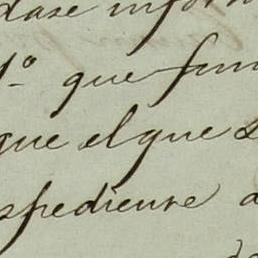 dase infor
1º que fun
que el que s
spediente a